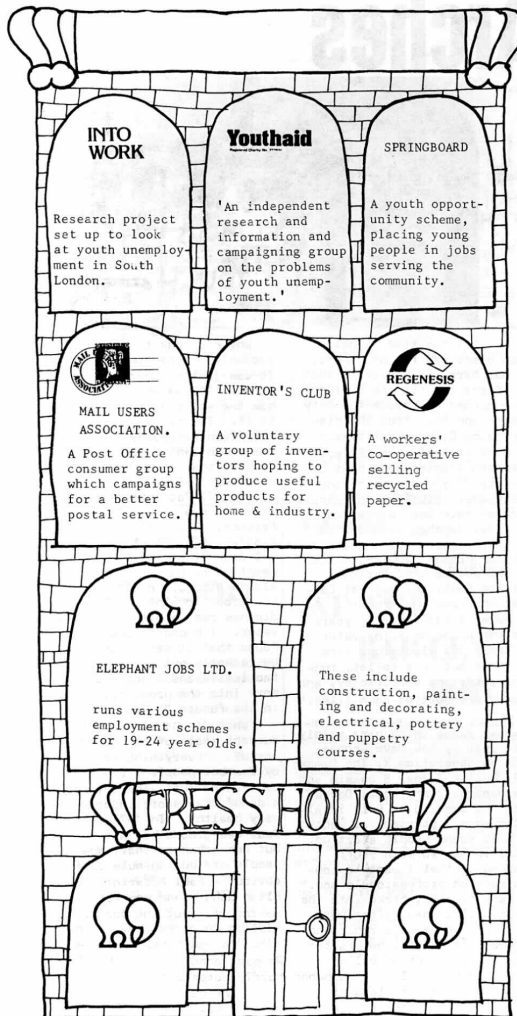 INTO
WORK
Research project
set up to look
at youth unemploy-
ment in South
London.
Youthaid
'An independent
research and
information and
campaigning group
on the problems
of youth unemp-
loyment.'
SPRINGBOARD
A youth opport-
unity scheme,
placing young
people in jobs
serving the
community.
MAIL USERS
ASSOCIATION.
A Post Office
consumer group
which campaigns
for a better
postal service.
INVENTOR'S CLUB
A voluntary
group of inven-
tors hoping to
produce useful
products for
home & industry.
REGENESIS
A workers'
co-operative
selling
recycled
paper.
ELEPHANT JOBS LTD.
runs various
employment schemes
for 19-24 year olds.
These include
construction, paint-
ing and decorating,
electrical, pottery
and puppetry
courses.
TRESS HOUSE